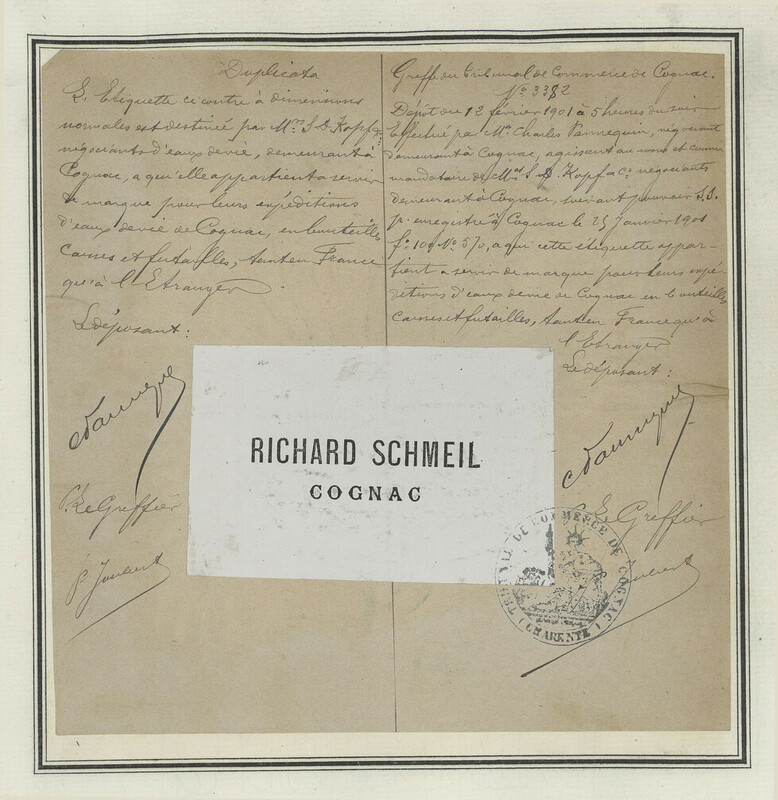 Duplicata
L'Etiquette ci contre à dimensions
normales est destinée par Mrs S D. Kopf & Co
négociants d'eaux de vie, demeurant à
Cognac, à qui elle appartient à servir
de marque pour leurs expéditions
d'eaux de vie de Cognac, en bouteilles
Caisses et futailles, tant en France
qu'à l'Etranger.
Le déposant:
Pr Le Greffier
Greffe du Tribunal de Commerce de Cognac.
No 3382
Dépôt du 12 février 1901 à 5 heures du soir
Effectué par Mr. Charles Pannequin, négociant
demeurant à Cognac, agissant au nom et comme
mandataire de Mrs S. D. Kopf & Co négociants
demeurant à Cognac, suivant pouvoir S.S.
p. enregistré à Cognac le 25 Janvier 1901
fo 100 No 570, à qui cette étiquette appar-
tient à servir de marque pour leurs expé-
ditions d'eaux de vie de Cognac en bouteilles
Caisses et futailles, tant en France qu'à
l'Etranger
Le déposant:
RICHARD SCHMEIL
COGNAC
Le Greffier
TRIBUNAL DE COMMERCE DE COGNAC
(CHARENTE)